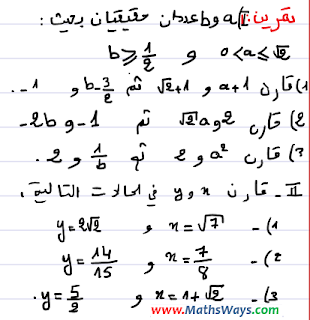 تمرين: I) a و b عددان حقيقيان بحيث:
0 < a ≤ √2 و b ≥ 1/2
1) قارن a+1 و √2+1 ثم b - 3/2 و -1.
2) قارن √2a و 2 ثم -1 و -2b
3) قارن a² و 2 ثم 1/b و 2.
II - قارن x و y في الحالات التالية:
1)- x = √7 و y = 2√2
2)- x = 7/8 و y = 14/15
3)- x = 1+√2 و y = 5/2.
www.MathsWays.com